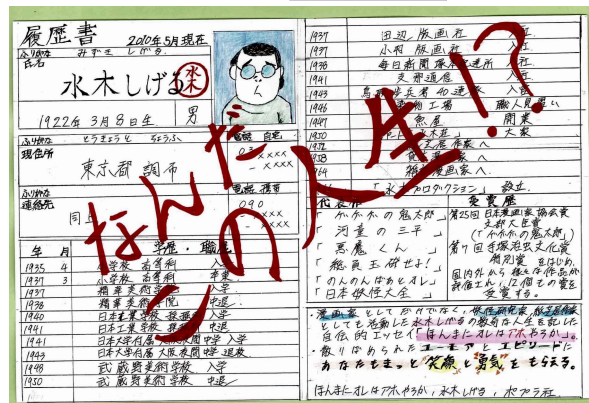 履歴書 2010年5月現在
ふりがな みずき しげる
氏名
水木しげる
水木
1922年 3月 8日生 男
ふりがな とうきょうと ちょうふ
現住所
東京都 調布
電話 自宅
03
xxxx
- xxxx
ふりがな
連絡先
同上
電話 携帯
090
- xxxx
- xxxx
年 月 学歴・職歴
1935 4 小学校 高等科 入学
1937 3 小学校 高等科 卒業
1937 精華美術学院 入学
1938 精華美術学院 中退
1940 日本工業学校 入学
1941 日本工業学校 中退
1941 日本大学付属 大阪夜間中学 入学
1943 日本大学付属 大阪夜間中学 退校
1948 武蔵野美術学校 入学
1950 武蔵野美術学校 中退
1937 田辺版画社 入社
1937 小村版画社 入社
1938 毎日新聞 入社
1941 支那通信 入社
1943 入営
1946 工場 職人見習い
1947 魚屋 開業
1950 水木荘」 大家
へ
1958 漫画家へ
1964 漫画家へ
「水木プロダクション」設立
代表作
「ゲゲゲの鬼太郎」
「河童の三平」
「悪魔くん」
「総員玉砕せよ!」
「のんのんばあとオレ」
「日本妖怪大全」
受賞歴
第25回 日本漫画家協会賞
文部大臣賞
(「ゲゲゲの鬼太郎」)
第7回 手塚治虫文化賞
特別賞 をはじめ、
国内外から様々な作品が
評価され、12個もの賞を
受賞する。
なんだ
この人生!?
・漫画家としてだけでなく、妖怪研究家、
としても活動した水木しげるの数奇な人生を記した
自伝的エッセイ「ほんまにオレはアホやろか」。
・散りばめられたユーモアとエピソードに
あなたもきっと"笑顔"と"勇気"をもらえる。
ほんまにオレはアホやろか, 水木しげる, ポプラ社.